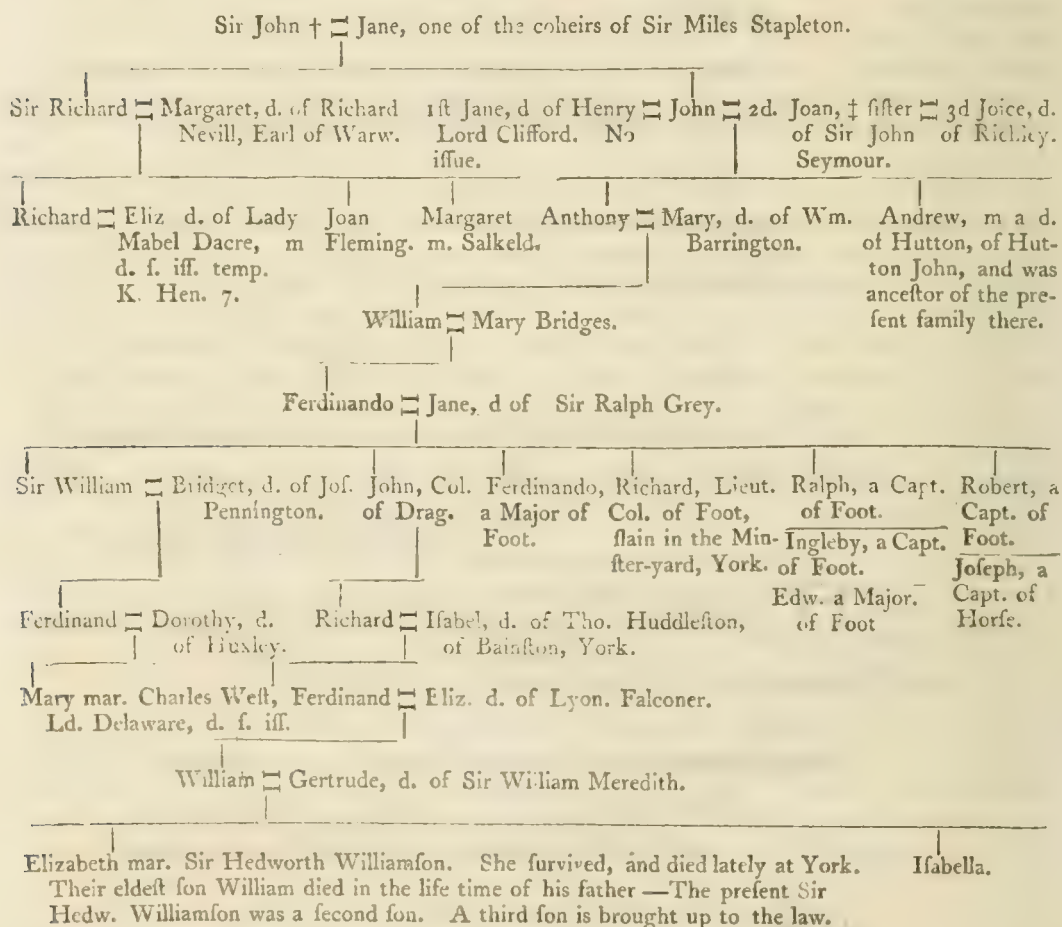 Sir John † = Jane, one of the coheirs of Sir Miles Stapleton.
Sir Richard = Margaret, d. of Richard Nevill, Earl of Warw.
1ſt Jane, d of Henry Lord Clifford. No iſſue. = John = 2d. Joan, ‡ ſiſter of Sir John Seymour. = 3d Joice, d. of
Richard = Eliz d. of Lady Mabel Dacre, m d. ſ. iſſ. temp. K. Hen. 7.
Joan Fleming.
Margaret m. Salkeld.
Anthony = Mary, d. of Wm. Barrington.
Andrew, m a d. of Hutton, of Hutton John, and was anceſtor of the preſent family there.
William = Mary Bridges.
Ferdinando = Jane, d of Sir Ralph Grey.
Sir William = Bridget, d. of Joſ. Pennington.
John, Col. of Drag.
Ferdinando, a Major of Foot.
Richard, Lieut. Col. of Foot, ſlain in the Minſter-yard, York.
Ralph, a Capt. of Foot.
Ingleby, a Capt. of Foot.
Edw. a Major. of Foot
Robert, a Capt. of Foot.
Joſeph, a Capt. of Horſe.
Ferdinand = Dorothy, d. of Huxley.
Richard = Iſabel, d. of Tho. Huddleſton, of Bainſton, York.
Mary mar. Charles Weſt, Ld. Delaware, d. ſ. iſſ.
Ferdinand = Eliz. d. of Lyon. Falconer.
William = Gertrude, d. of Sir William Meredith.
Elizabeth mar. Sir Hedworth Williamſon. She ſurvived, and died lately at York.
Their eldeſt ſon William died in the life time of his father —The preſent Sir
Hedw. Williamſon was a ſecond ſon. A third ſon is brought up to the law.
Iſabella.